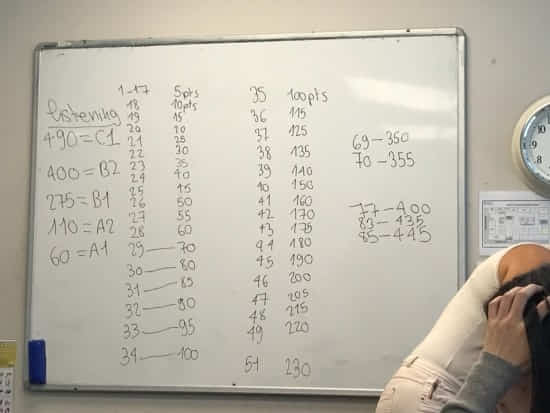 listening
490 = C1
400 = B2
275 = B1
110 = A2
60 = A1
1-17 5pts
18 10pts
19 15
20 20
21 25
22 30
23 35
24 40
25 45
26 50
27 55
28 60
29 — 70
30 — 80
31 — 85
32 — 90
33 — 95
34 — 100
35 100pts
36 115
37 125
38 135
39 140
40 150
41 160
42 170
43 175
44 180
45 190
46 200
47 205
48 215
49 220
51 230
69 - 350
70 - 355
77 - 400
83 - 435
85 - 445